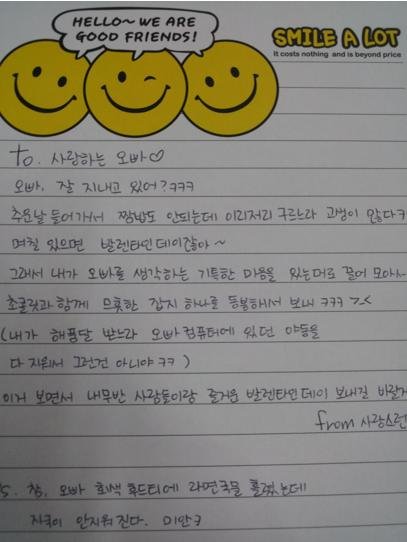 HELLO~ WE ARE
GOOD FRIENDS!
SMILE A LOT
It costs nothing and is beyond price
to. 사랑하는 오빠♡
오빠, 잘 지내고 있어? ㅋㅋㅋ
추운날 들어가서 짬밥도 안되는데 이리저리 구르느라 고생이 많다ㅋ
며칠 있으면 발렌타인데이잖아~
그래서 내가 오빠를 생각하는 기특한 마음을 있는대로 끌어 모아서
초콜릿과 함께 므흣한 잡지 하나를 동봉해서 보내 ㅋㅋㅋ >.<
(내가 해품달 받느라 오빠 컴퓨터에 있던 야동을
다 지워서 그런건 아니야 ㅋㅋ )
이거 보면서 내무반 사람들이랑 즐거운 발렌타인데이 보내길 바랄게
from 사랑스런
S. 참, 오빠 회색 후드티에 라면국물 흘렸는데
자국이 안지워진다. 미안ㅋ